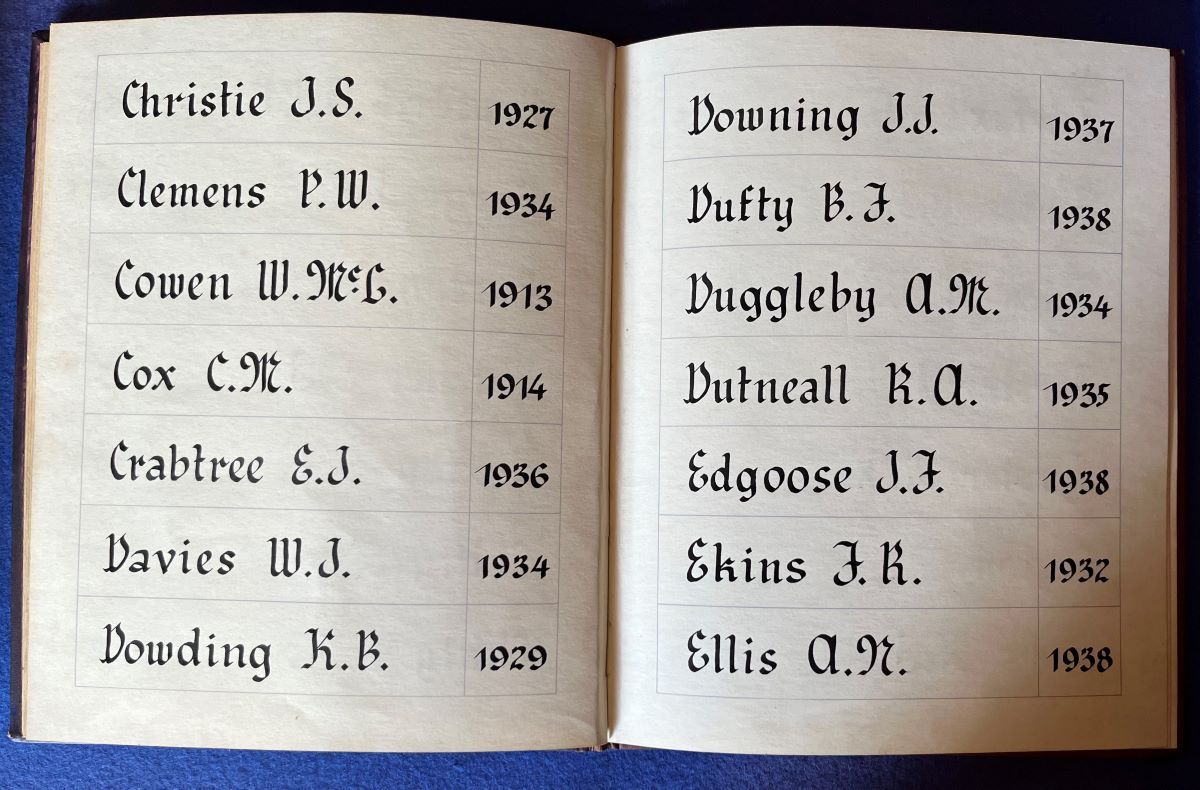 Christie J.S. 1927
Clemens P.W. 1934
Cowen W.McC. 1913
Cox C.M. 1914
Crabtree E.J. 1936
Davies W.J. 1934
Dowding K.B. 1929
Downing J.J. 1937
Dufty B.F. 1938
Duggleby A.M. 1934
Dutneall R.A. 1935
Edgoose J.F. 1938
Ekins F.R. 1932
Ellis A.N. 1938